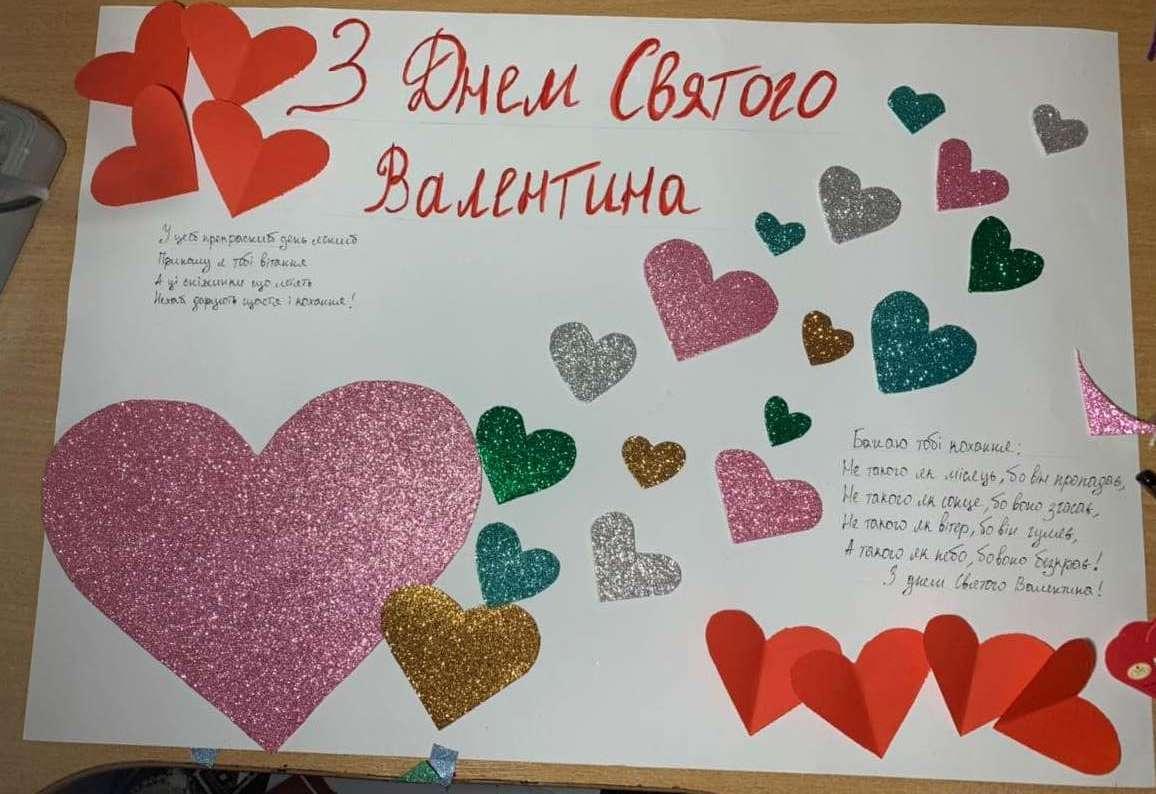 З Днем Святого
Валентина
У цей прекрасний день ясний
Приношу я тобі вітання
А ці сніжинки що летять
Нехай дарують щастя і кохання!
Бажаю тобі кохання:
Не такого як місяць, бо він пропадає,
Не такого як сонце, бо воно згасає,
Не такого як вітер, бо він гуляє,
А такого як небо, бо воно безкрає!
З днем Святого Валентина!